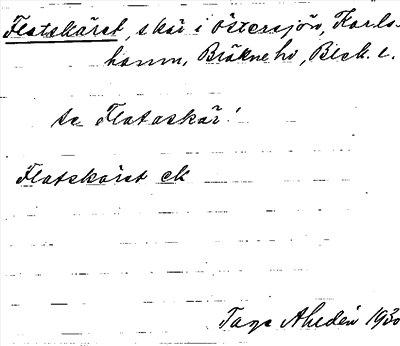 Flatskäret, skär i Östersjön, Karls-
hamn, Bräkne hd, Blek. l.
se Flataskär!
Flatskäret ek
Tage Ahldén 1930